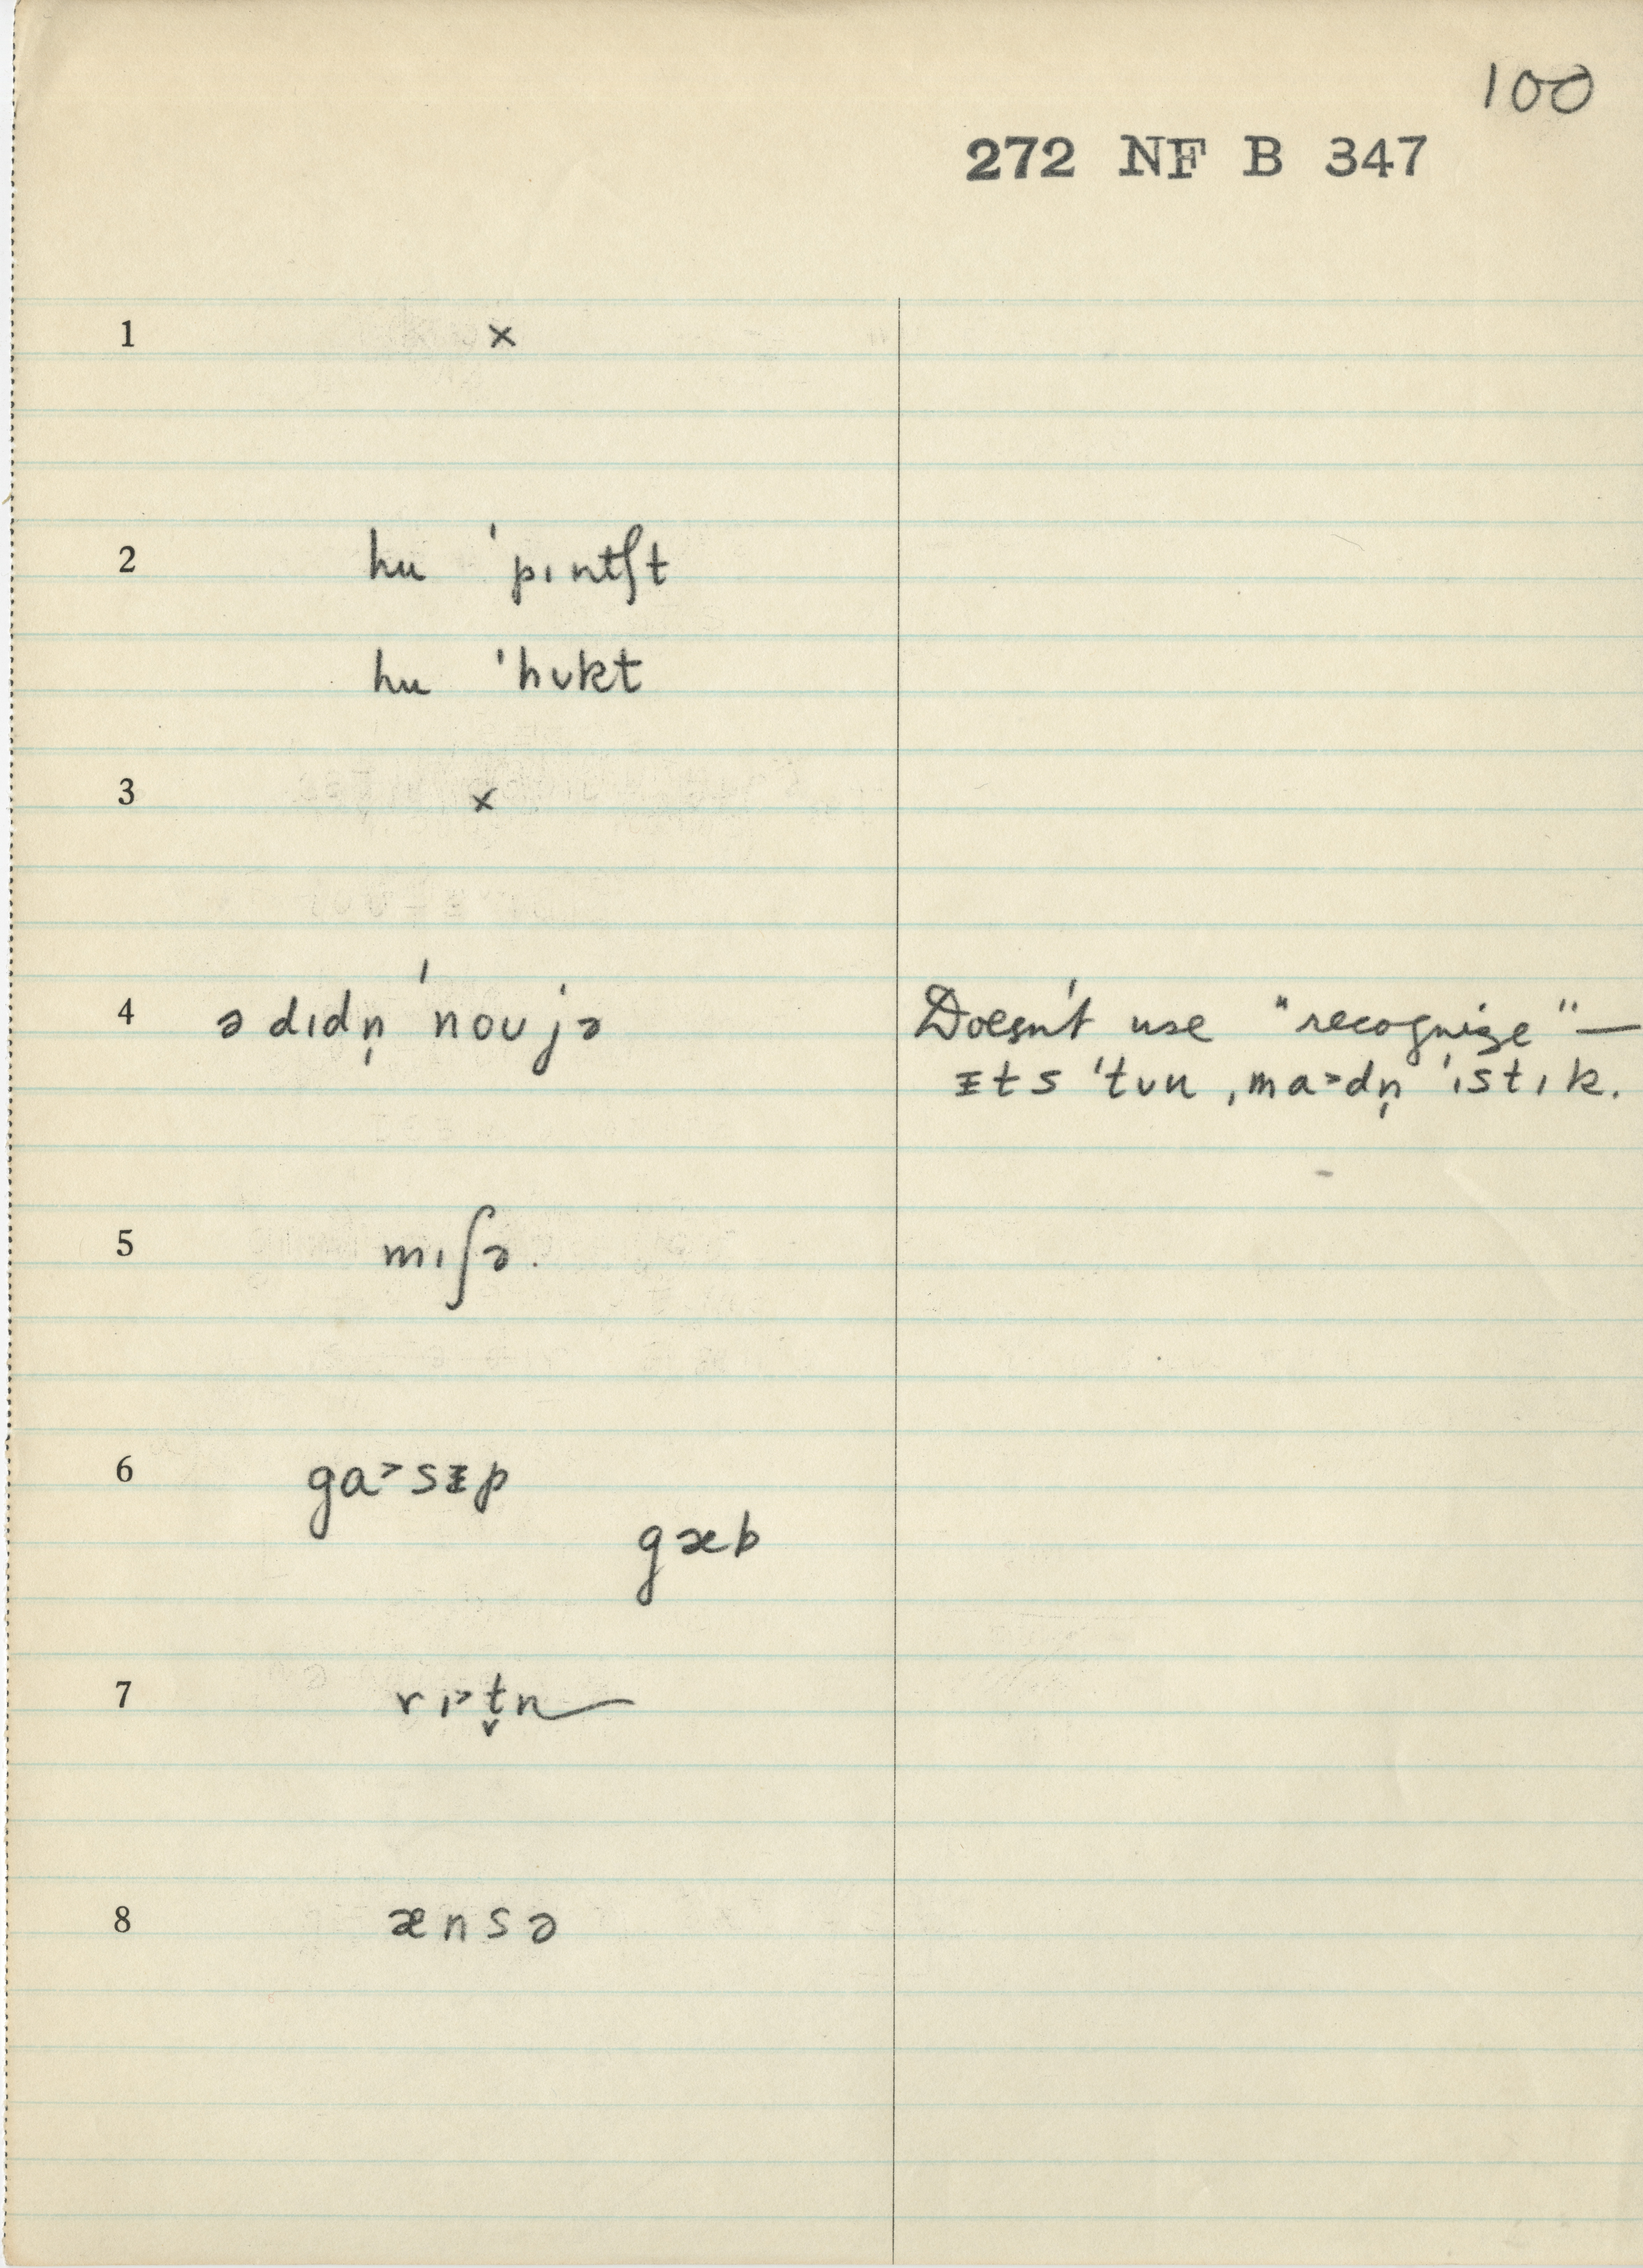 100
272 NF B 347
1 ×
2 hu ˈpɪntʃt
hu ˈhʊkt
3 ×
4 ə dɪdn̩ ˈnoʊ jə Doesn't use "recognize"—
ᵻts ˈtuu ˌma˃dn̩ ˈɪstɪk.
5 mɪʃə.
6 ga˃sᵻp
gæb
7 rɪ˃t̬n
8 ænsə